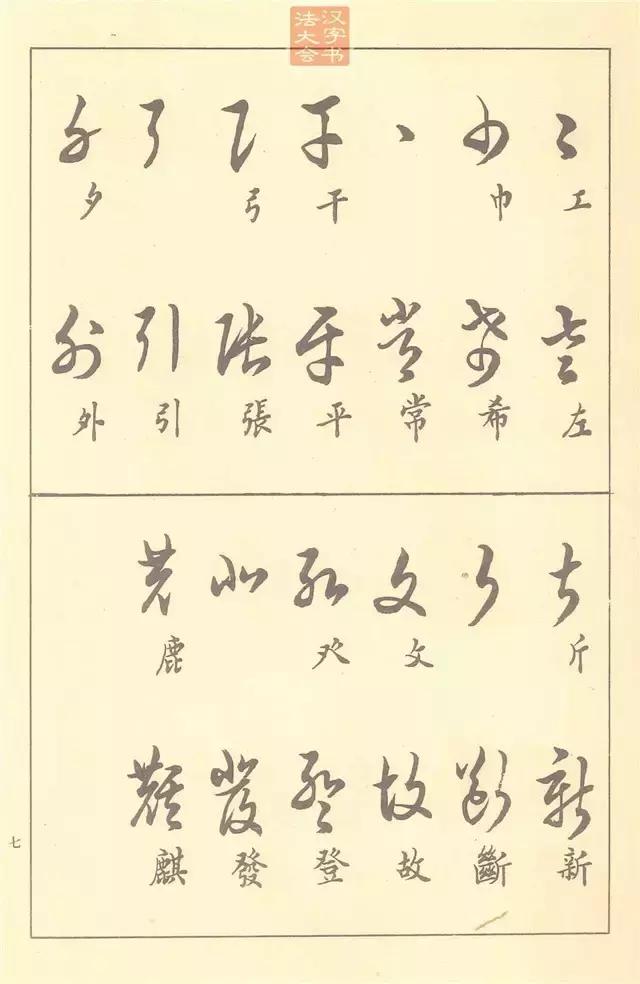 汉字书
法大会
工 巾 干 弓 夕
左 希 常 平 張 引 外
斤 攵 癶 鹿
新 斷 故 登 發 麒
七